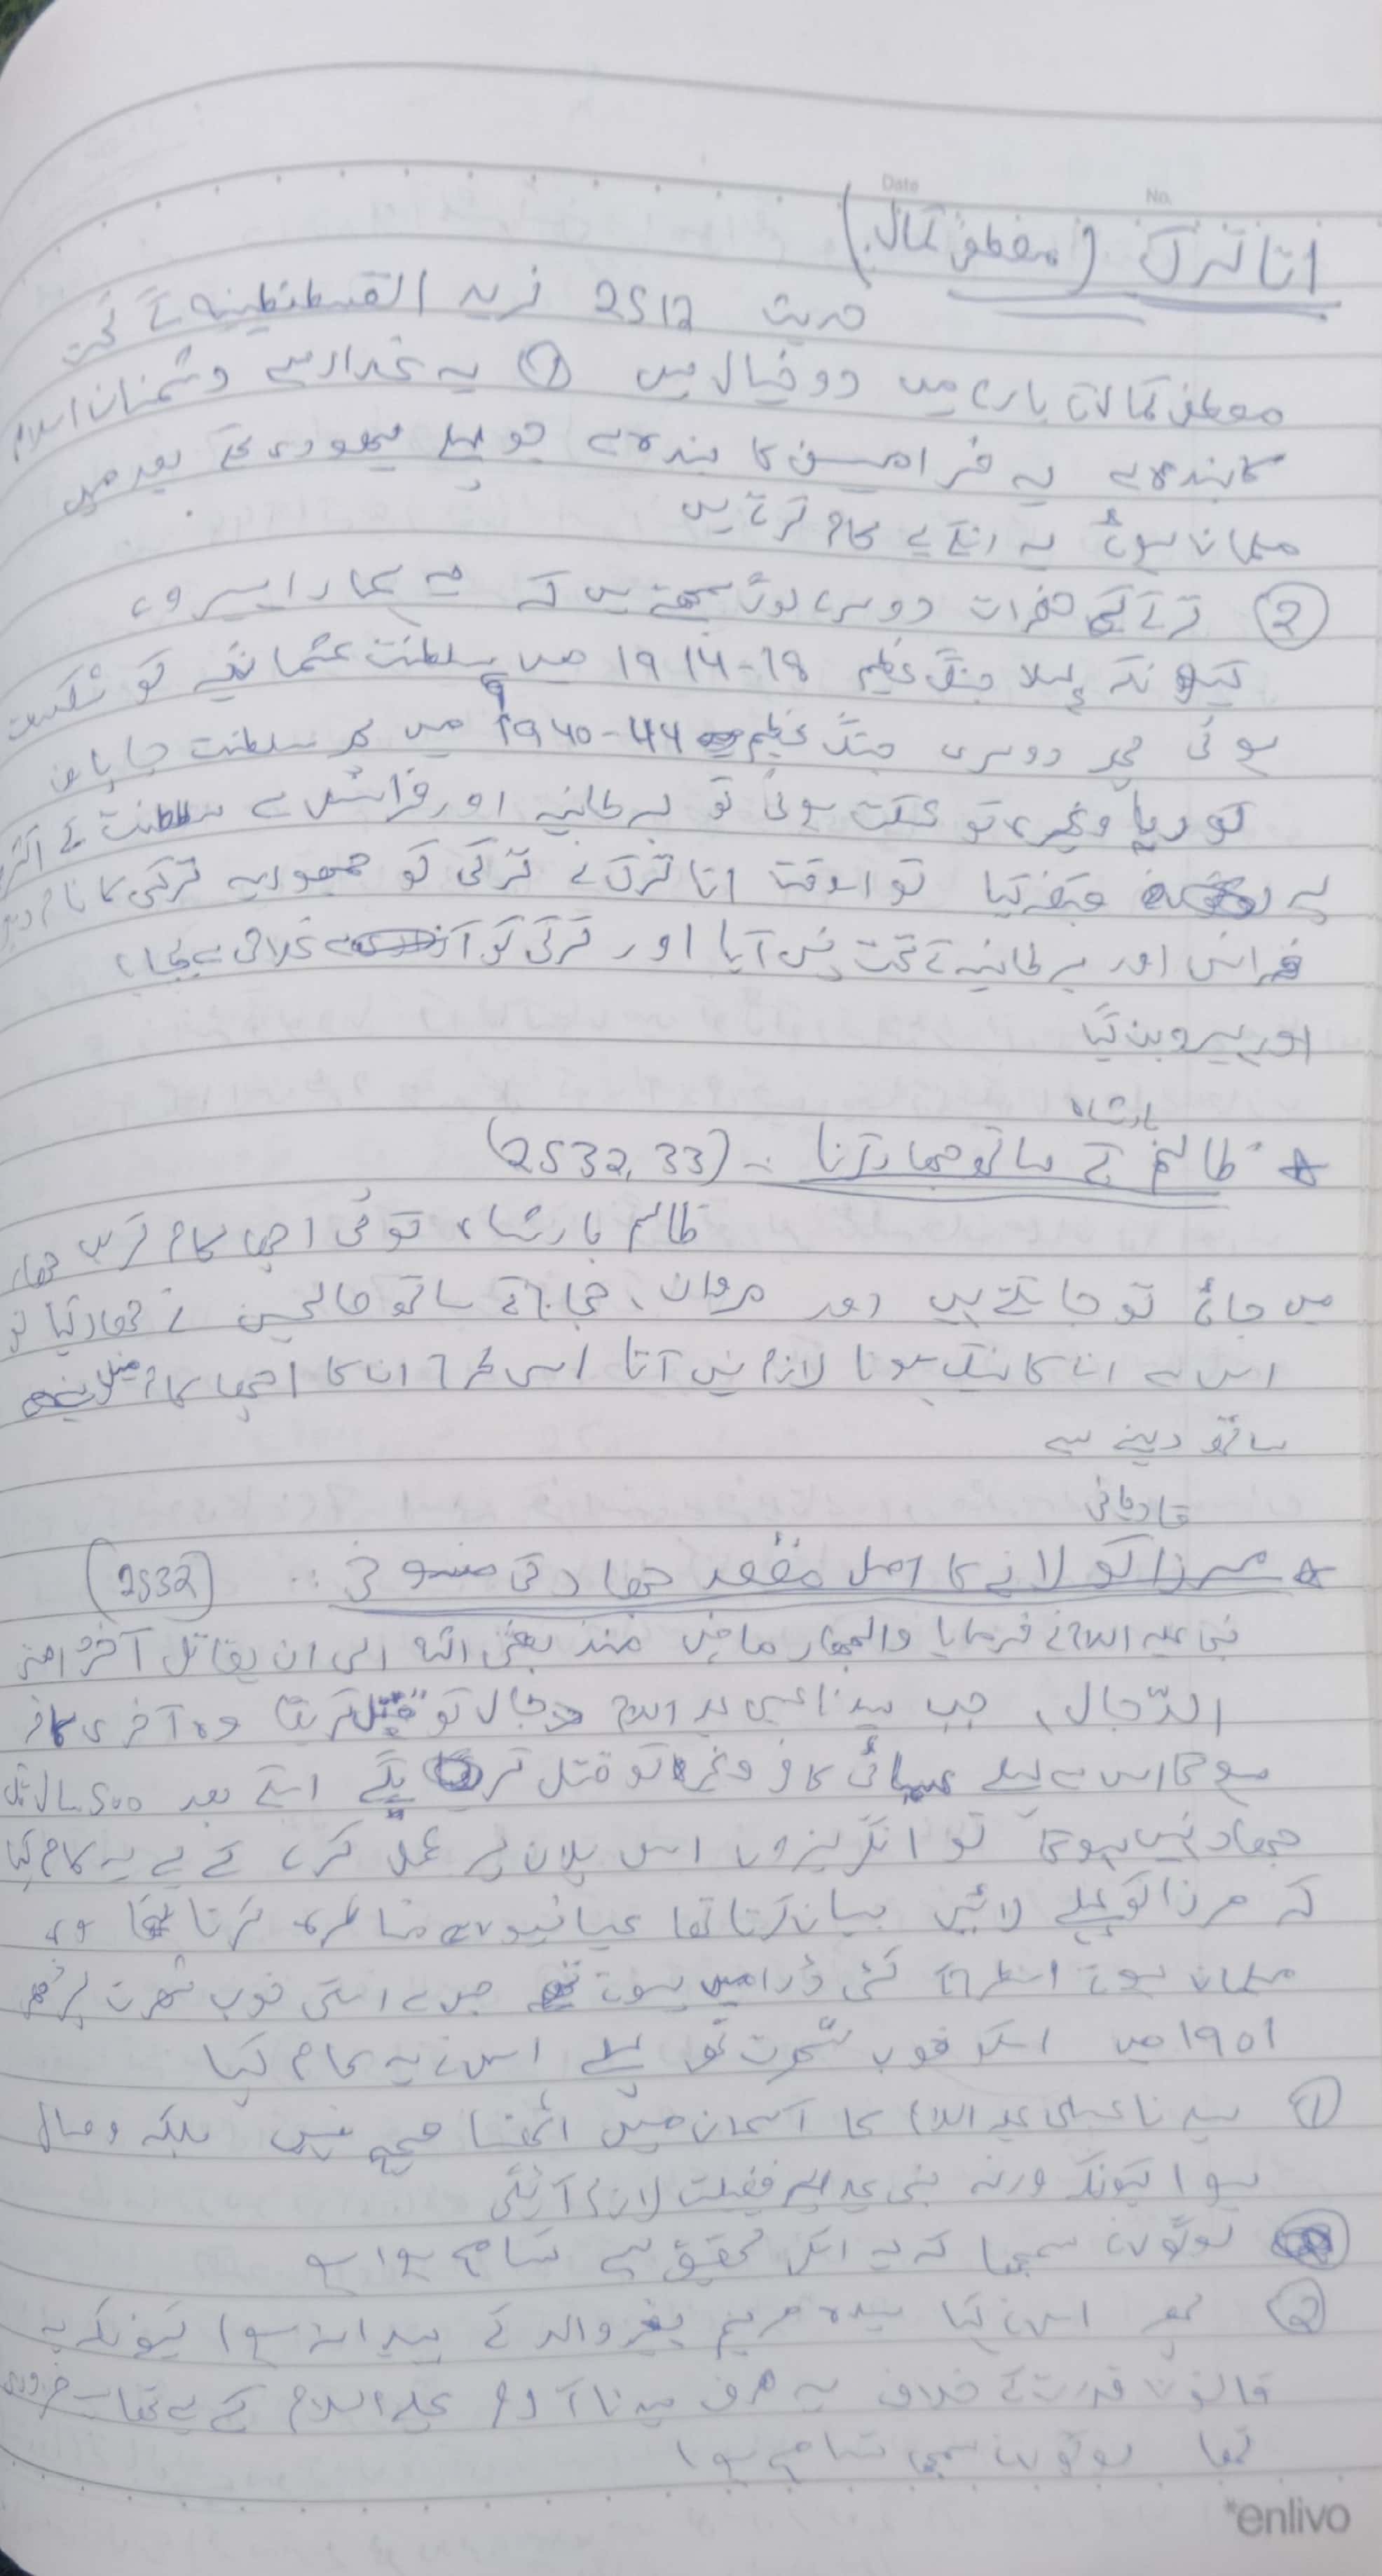 Date No.
اتاترک (مصطفیٰ کمال)
حدیث 2512 نمبر القسطنطینیہ کے تحت
مصطفیٰ کمال کے بارے میں دو خیال ہیں ① یہ غدار ہے دشمنان اسلام
کا بندہ ہے یہ فرامیسن کا بندہ ہے جو پہلے یہودی تھے بعد میں
مسلمان ہوئے یہ انکے لیے کام کرتے ہیں
② ترکے حضرات دوسرے لوگ سمجھتے ہیں کہ یہ ہمارا ہیرو ہے
کیونکہ پہلا جنگ عظیم 1914-18 میں سلطنت عثمانیہ کو شکست
ہوئی پھر دوسری جنگ عظیم 1940-44 میں پھر سلطنت جاپان
کوریا وغیرہ کو شکست ہوئی تو برطانیہ اور فرانس نے سلطنت کے اکثر
پہ قبضہ کیا تو اسوقت اتاترک نے ترکی کو جمہوریہ ترکی کا نام دیا
فرانس اور برطانیہ کے تحت نہیں آیا اور ترکی کو غلامی سے بچایا
اور ہیرو بن گیا
بادشاہ
* ظالم کے ساتھ جہاد کرنا :- (2532, 33)
ظالم بادشاہ کوئی اچھا کام کرے جہاد
میں جائے تو جا سکتے ہیں اور مروان، حجاج کے ساتھ صالحین نے جہاد کیا تو
اس سے انکا نیک ہونا لازم نہیں آتا اسی طرح ان کا اچھا کام
ساتھ دینے سے
قادیانی
* مرزا کو لانے کا اصل مقصد جہاد کی منسوخی :- (2532)
نبی علیہ السلام نے فرمایا والجہاد ماض منذ بعثنی اللہ الی ان یقاتل آخر امتی
الدّجال، جب سیدنا عیسیٰ علیہ السلام دجال کو قتل کریگا وہ آخری کافر
ہوگا اس سے پہلے عیسائی کافر وغیرہ کو قتل کریں گے اسکے بعد 500 سال تک
جہاد نہیں ہوگا تو انگریزوں اس پلان پر عمل کرنے کے لیے یہ کام کیا
کہ مرزا کو پہلے لائیں بیان کرتا تھا عیسائیوں سے مناظرہ کرتا تھا وہ
مسلمان ہوتے اسطرح کئی ڈرامیں ہوتے تھے جس سے اسکی خوب شہرت
1901 میں اسکو خوب شہرت ہوئی پہلے اس نے یہ کام کیا
① سیدنا عیسیٰ علیہ السلام کا آسمان میں اٹھنا صحیح نہیں بلکہ وصال
ہوا کیونکہ ورنہ نبی علیہ السلام پر فضیلت لازم آئیگی
لوگوں نے سمجھا کہ یہ اسکی تحقیق ہے تسامح ہوا ہے
② پھر اس نے کہا سیدہ مریم بغیر والد کے پیدا نہ ہوا کیونکہ یہ
قانون قدرت کے خلاف ہے صرف سیدنا آدم علیہ السلام کے لیے تھا ضروری
تھا لوگوں نے سمجھا تسامح ہوا
enlivo